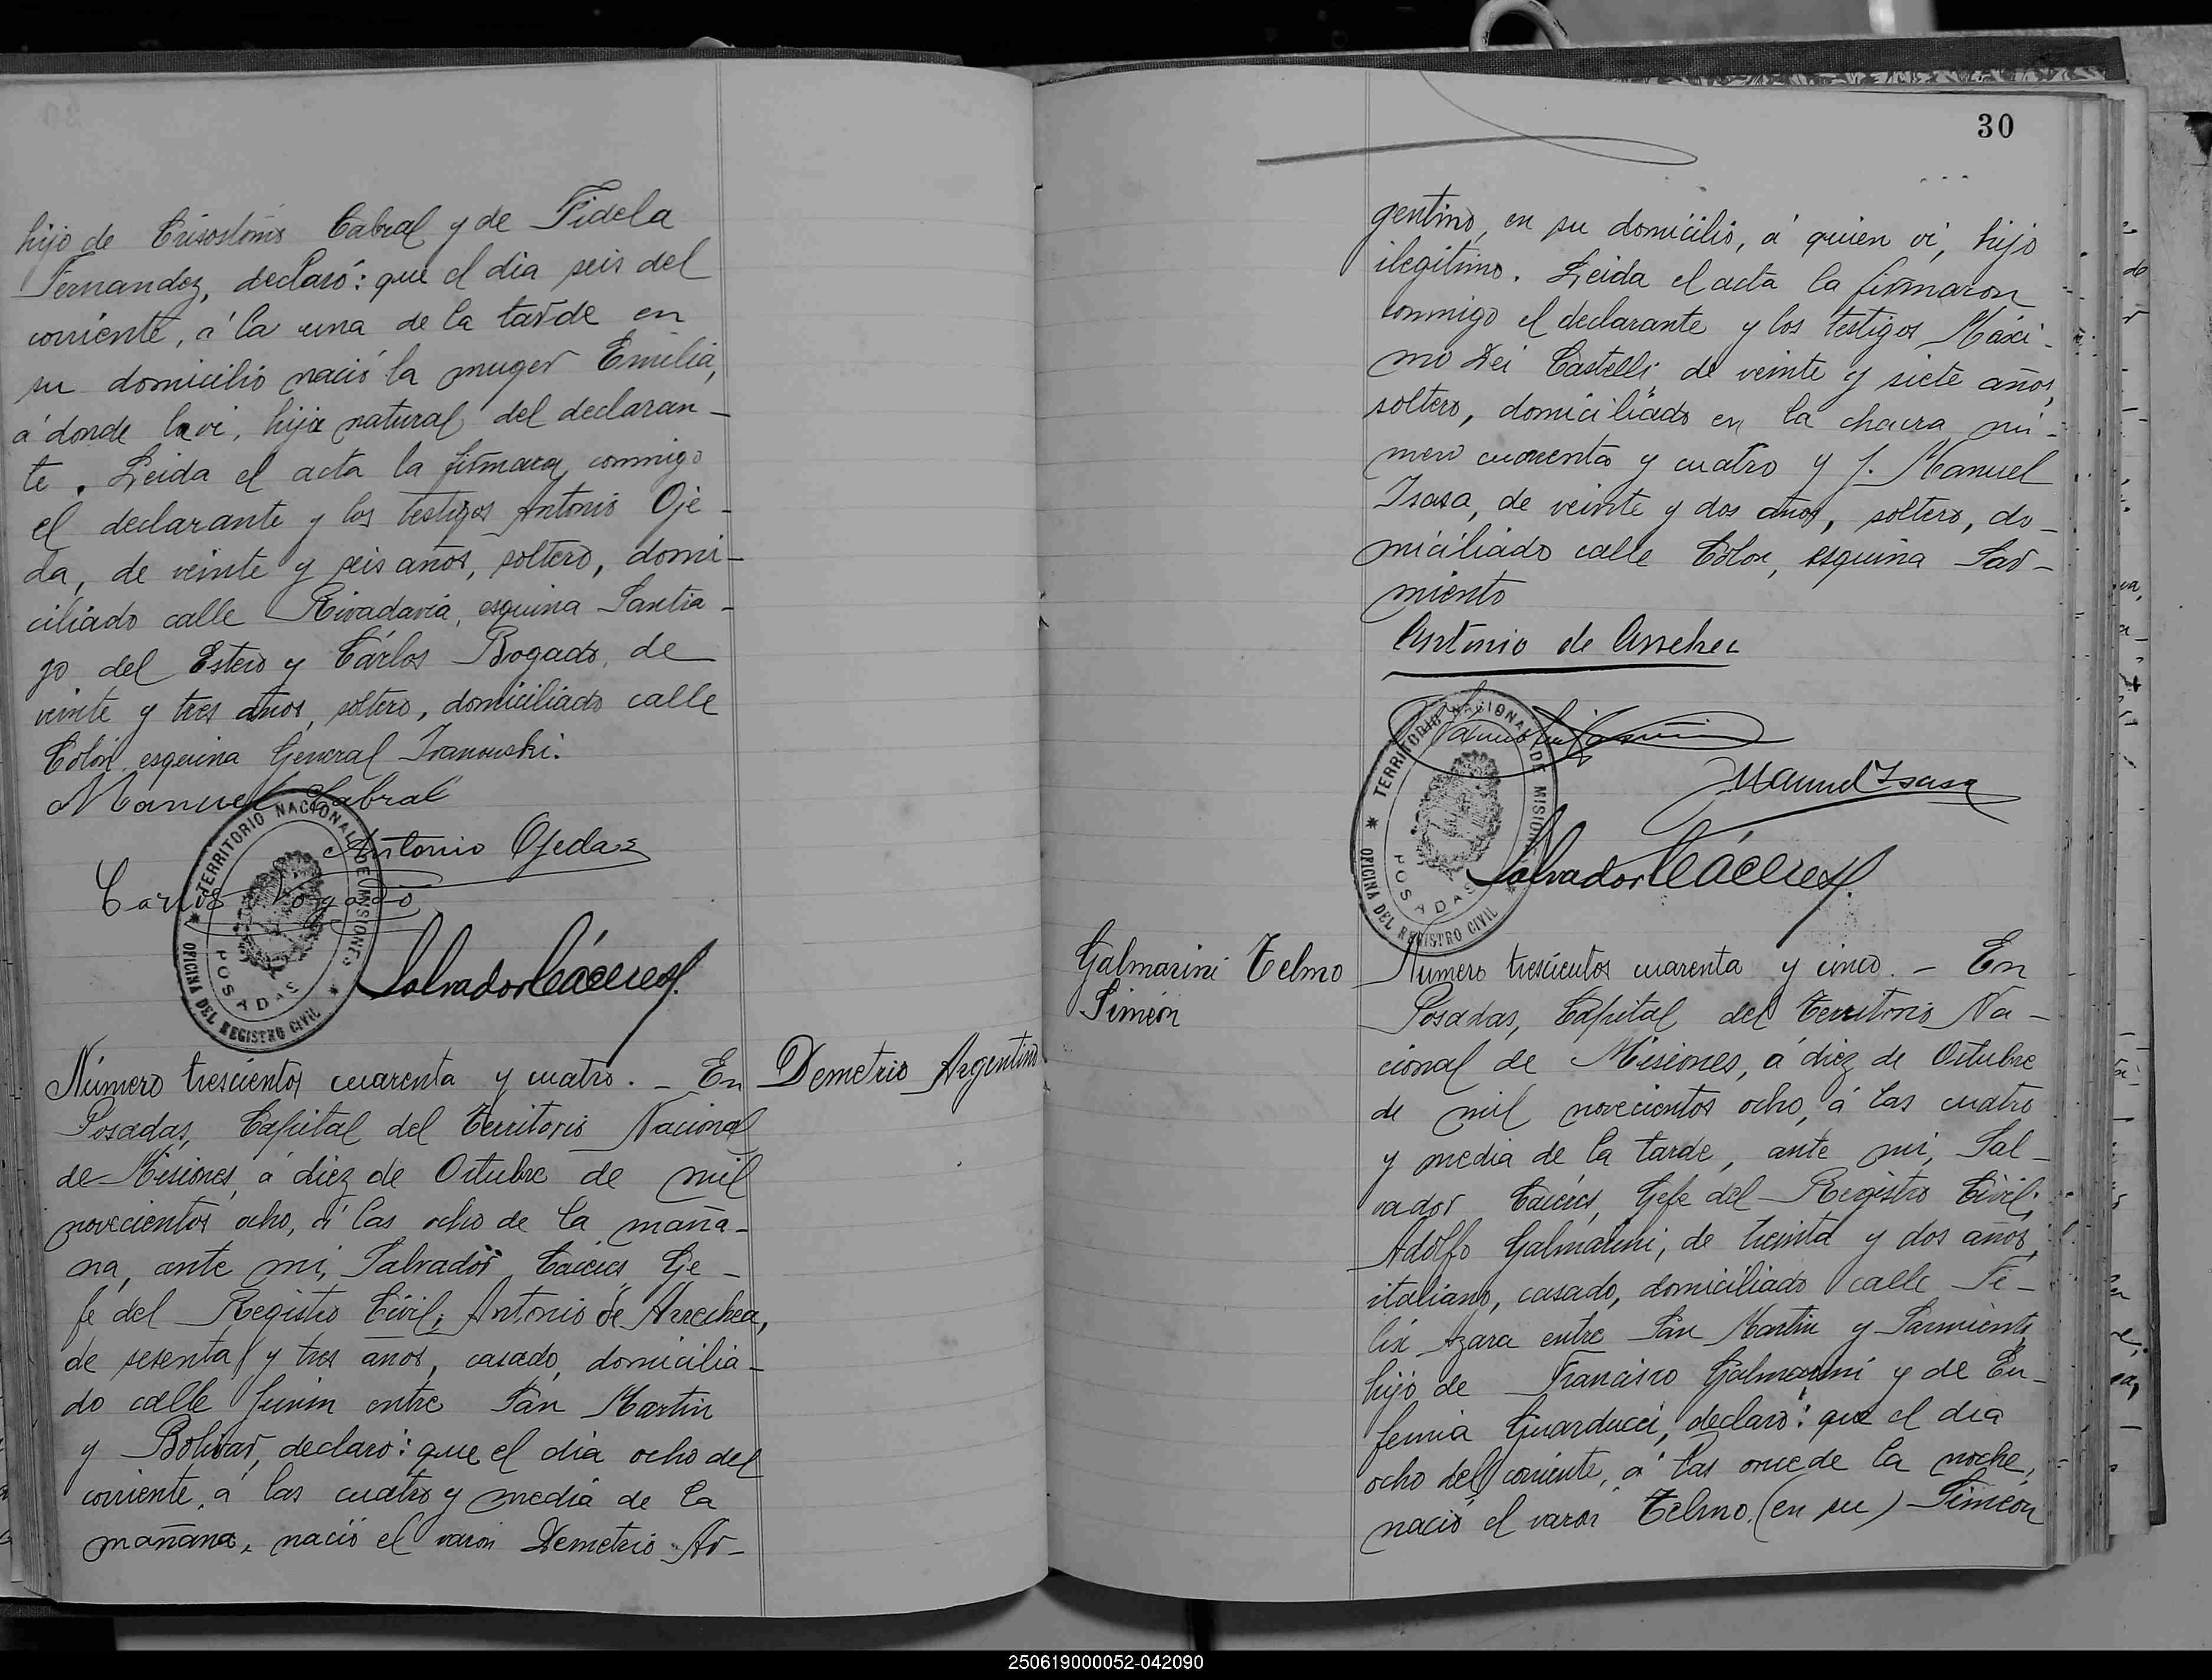 hijo de Crisostomo Cabral y de Fidela
Fernandez, declaró: que el dia seis del
corriente, á la una de la tarde en
su domicilio nació la muger Emilia,
á donde la vi, hija natural del declaran-
te. Leida el acta la firmaron conmigo
el declarante y los testigos Antonio Oje-
da, de veinte y seis años, soltero, domi-
ciliado calle Rivadavia, esquina Santia-
go del Estero y Cárlos Bogado, de
veinte y tres años, soltero, domiciliado calle
Colón esquina General Ivanowski.
Manuel Cabral
Antonio Ojeda
Carlos Bogado
TERRITORIO NACIONAL DE MISIONES
POSADAS
OFICINA DEL REGISTRO CIVIL
Salvador Cáceres
Número trescientos cuarenta y cuatro. - En
Demetrio Argentino
Posadas, Capital del Territorio Nacional
de Misiones, á diez de Octubre de mil
novecientos ocho, á las ocho de la maña-
na, ante mi, Salvador Cáceres, Ge-
fe del Registro Civil; Antonio de Arrechea,
de sesenta y tres años, casado, domicilia-
do calle Junin entre San Martin
y Bolivar, declaró: que el dia ocho del
corriente, á las cuatro y media de la
mañana, nació el varon Demetrio Ar-
30
gentino, en su domicilio, á quien vi, hijo
ilegitimo. Leida el acta la firmaron
conmigo el declarante y los testigos Máxi-
mo Dei Castelli, de veinte y siete años,
soltero, domiciliado en la chacra nú-
mero cuarenta y cuatro y J. Manuel
Isasa, de veinte y dos años, soltero, do-
miciliado calle Colon, esquina Sar-
miento
Antonio de Arrechea
TERRITORIO NACIONAL DE MISIONES
POSADAS
OFICINA DEL REGISTRO CIVIL
Manuel Isasa
Salvador Cáceres
Galmarini Telmo
Simeón
Número trescientos cuarenta y cinco. - En
Posadas, Capital del Territorio Na-
cional de Misiones, á diez de Octubre
de mil novecientos ocho, á las cuatro
y media de la tarde, ante mi, Sal-
vador Cáceres, Gefe del Registro Civil;
Adolfo Galmarini, de treinta y dos años,
italiano, casado, domiciliado calle Fe-
lix Azara entre San Martin y Sarmiento,
hijo de Francisco Galmarini y de Eu-
femia Guarducci, declaró: que el dia
ocho del corriente, á las once de la noche,
nació el varon Telmo (en su) Simeón
250619000052-042090